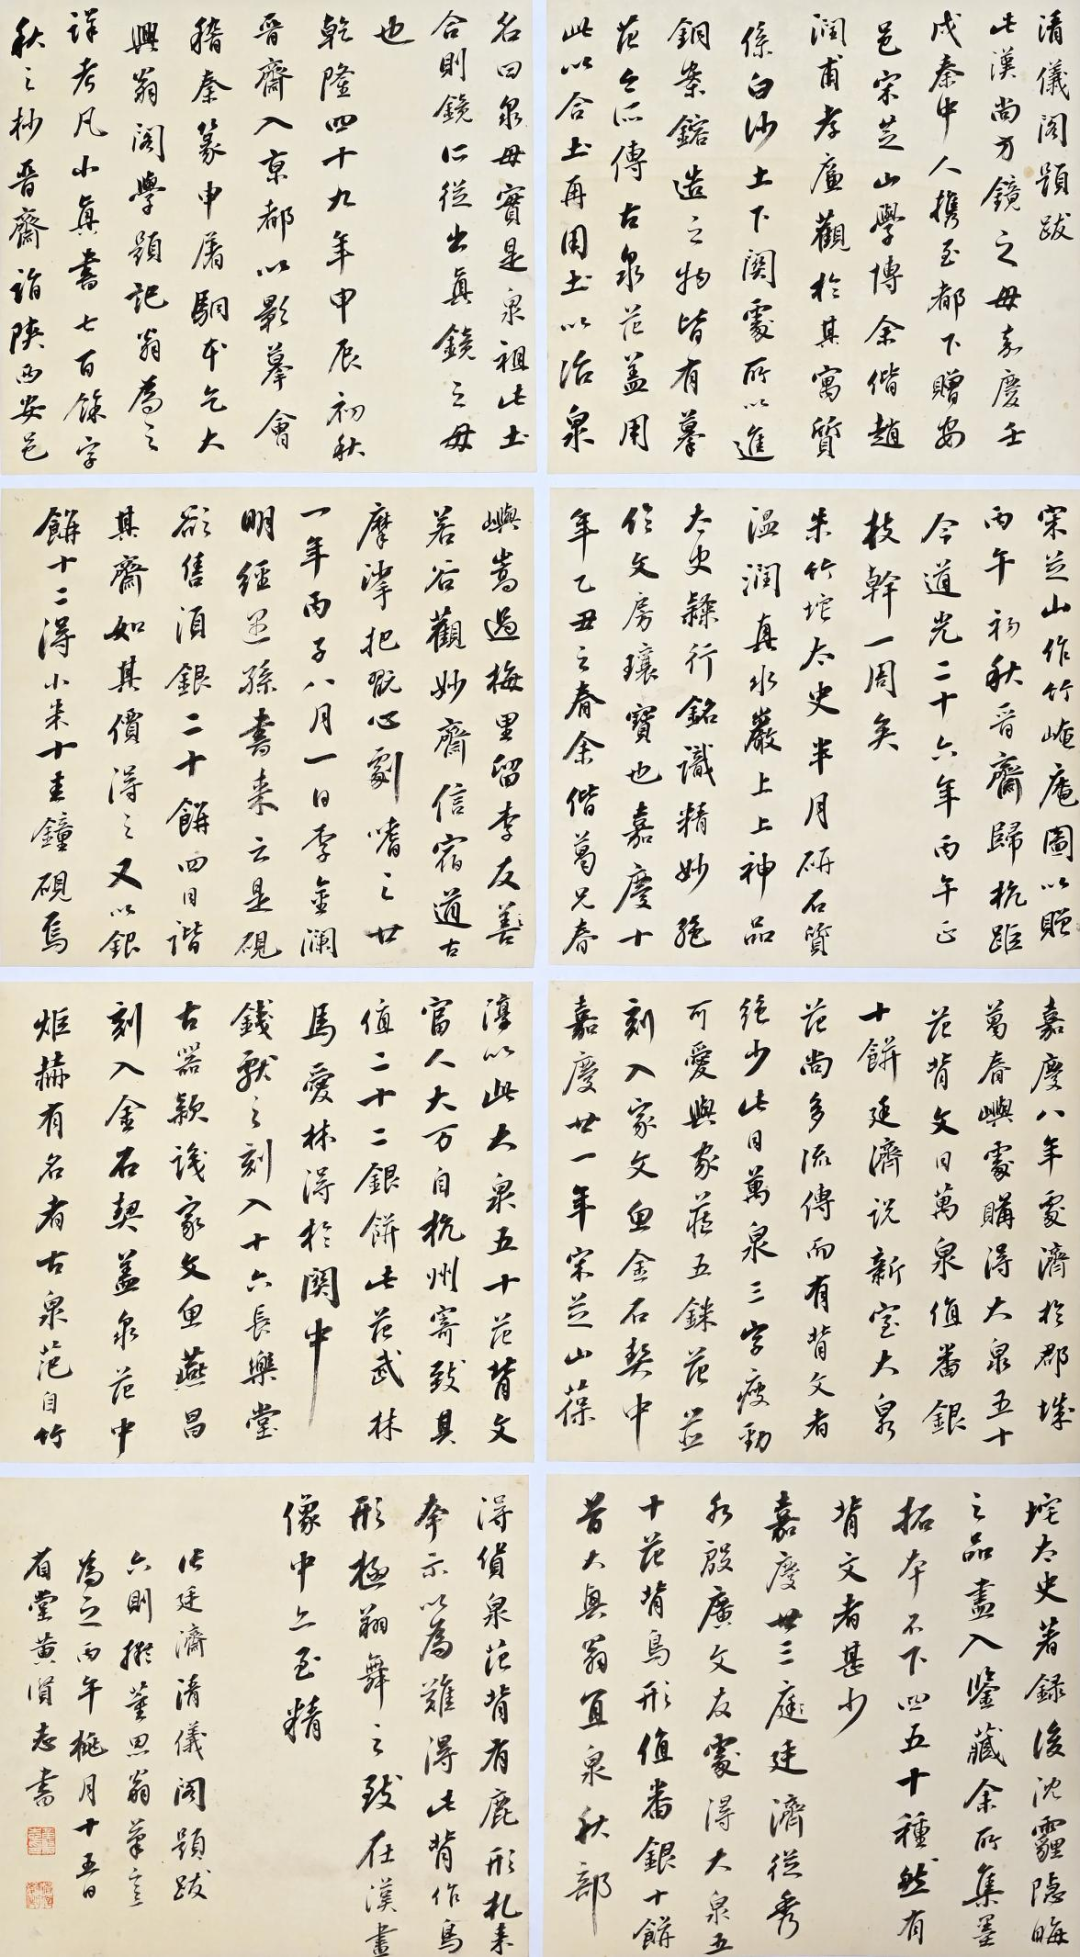 清儀閣題跋
此漢尚方鏡之毋嘉慶壬
戌秦中人携至都下贈安
邑宋芝山學博余偕趙
潤甫孝廉觀於其寓質
係白沙土下闕處所以進
銅案鎔造之物皆有摹
范今所傳古泉范蓋用
此以合土再用土以冶泉
名曰泉毋實是泉祖此土
合則鏡所從出真鏡之毋
也
乾隆四十九年甲辰初秋
晋齋入京都以影摹會
稽秦篆申屠駉本乞大
興翁閣學題記翁爲之
詳考凡小真書七百餘字
秋之杪晋齋詣陝西安邑
宋芝山作竹崦庵圖以贈
丙午初秋晋齋歸杭距
今道光二十六年丙午正
枝幹一周矣
朱竹垞太史半月研石質
温潤真水巖上上神品
太史隸行銘識精妙絶
伦文房瓌寶也嘉慶十
年乙丑之春余偕葛兄春
嶼嵩過梅里留李友善
若谷觀妙齋信宿道古
摩挲把翫心劇嗜之廿
一年丙子八月一日李金瀾
明經遇孫書来云是硯
欲售須銀二十餅四日諧
其齋如其價得之又以銀
餅十二得小米十圭鐘硯焉
嘉慶八年處濟於郡城
葛春嶼處購得大泉五十
范背文曰萬泉值番銀
十餅廷濟說新室大泉
范尚多流傳而有背文者
絶少此曰萬泉三字瘦勁
可愛與家藏五銖范並
刻入家文魚金石契中
嘉慶廿一年宋芝山葆
淳以此大泉五十范背文
富人大万自杭州寄致具
值二十二銀餅此范武林
馬愛林得於関中
錢獻之刻入十六長樂堂
古器款識家文魚燕昌
刻入金石契蓋泉范中
炬赫有名者古泉范自竹
垞太史著録後沈霾隐晦
之品盡入鑒藏余所集墨
拓本不下四五十種然有
背文者甚少
嘉慶廿三庭廷濟從秀
水殷廣文友處得大泉五
十范背鳥形值番銀十餅
昔大興翁宜泉秋部
得貨泉范背有鹿形札来
奉示以為難得此背作鳥
形極翔舞之致在漢畫
像中亦至精
张廷濟清儀閣題跋
六則拟董思翁筆意
爲之丙午桃月十五日
有堂黄賢志書